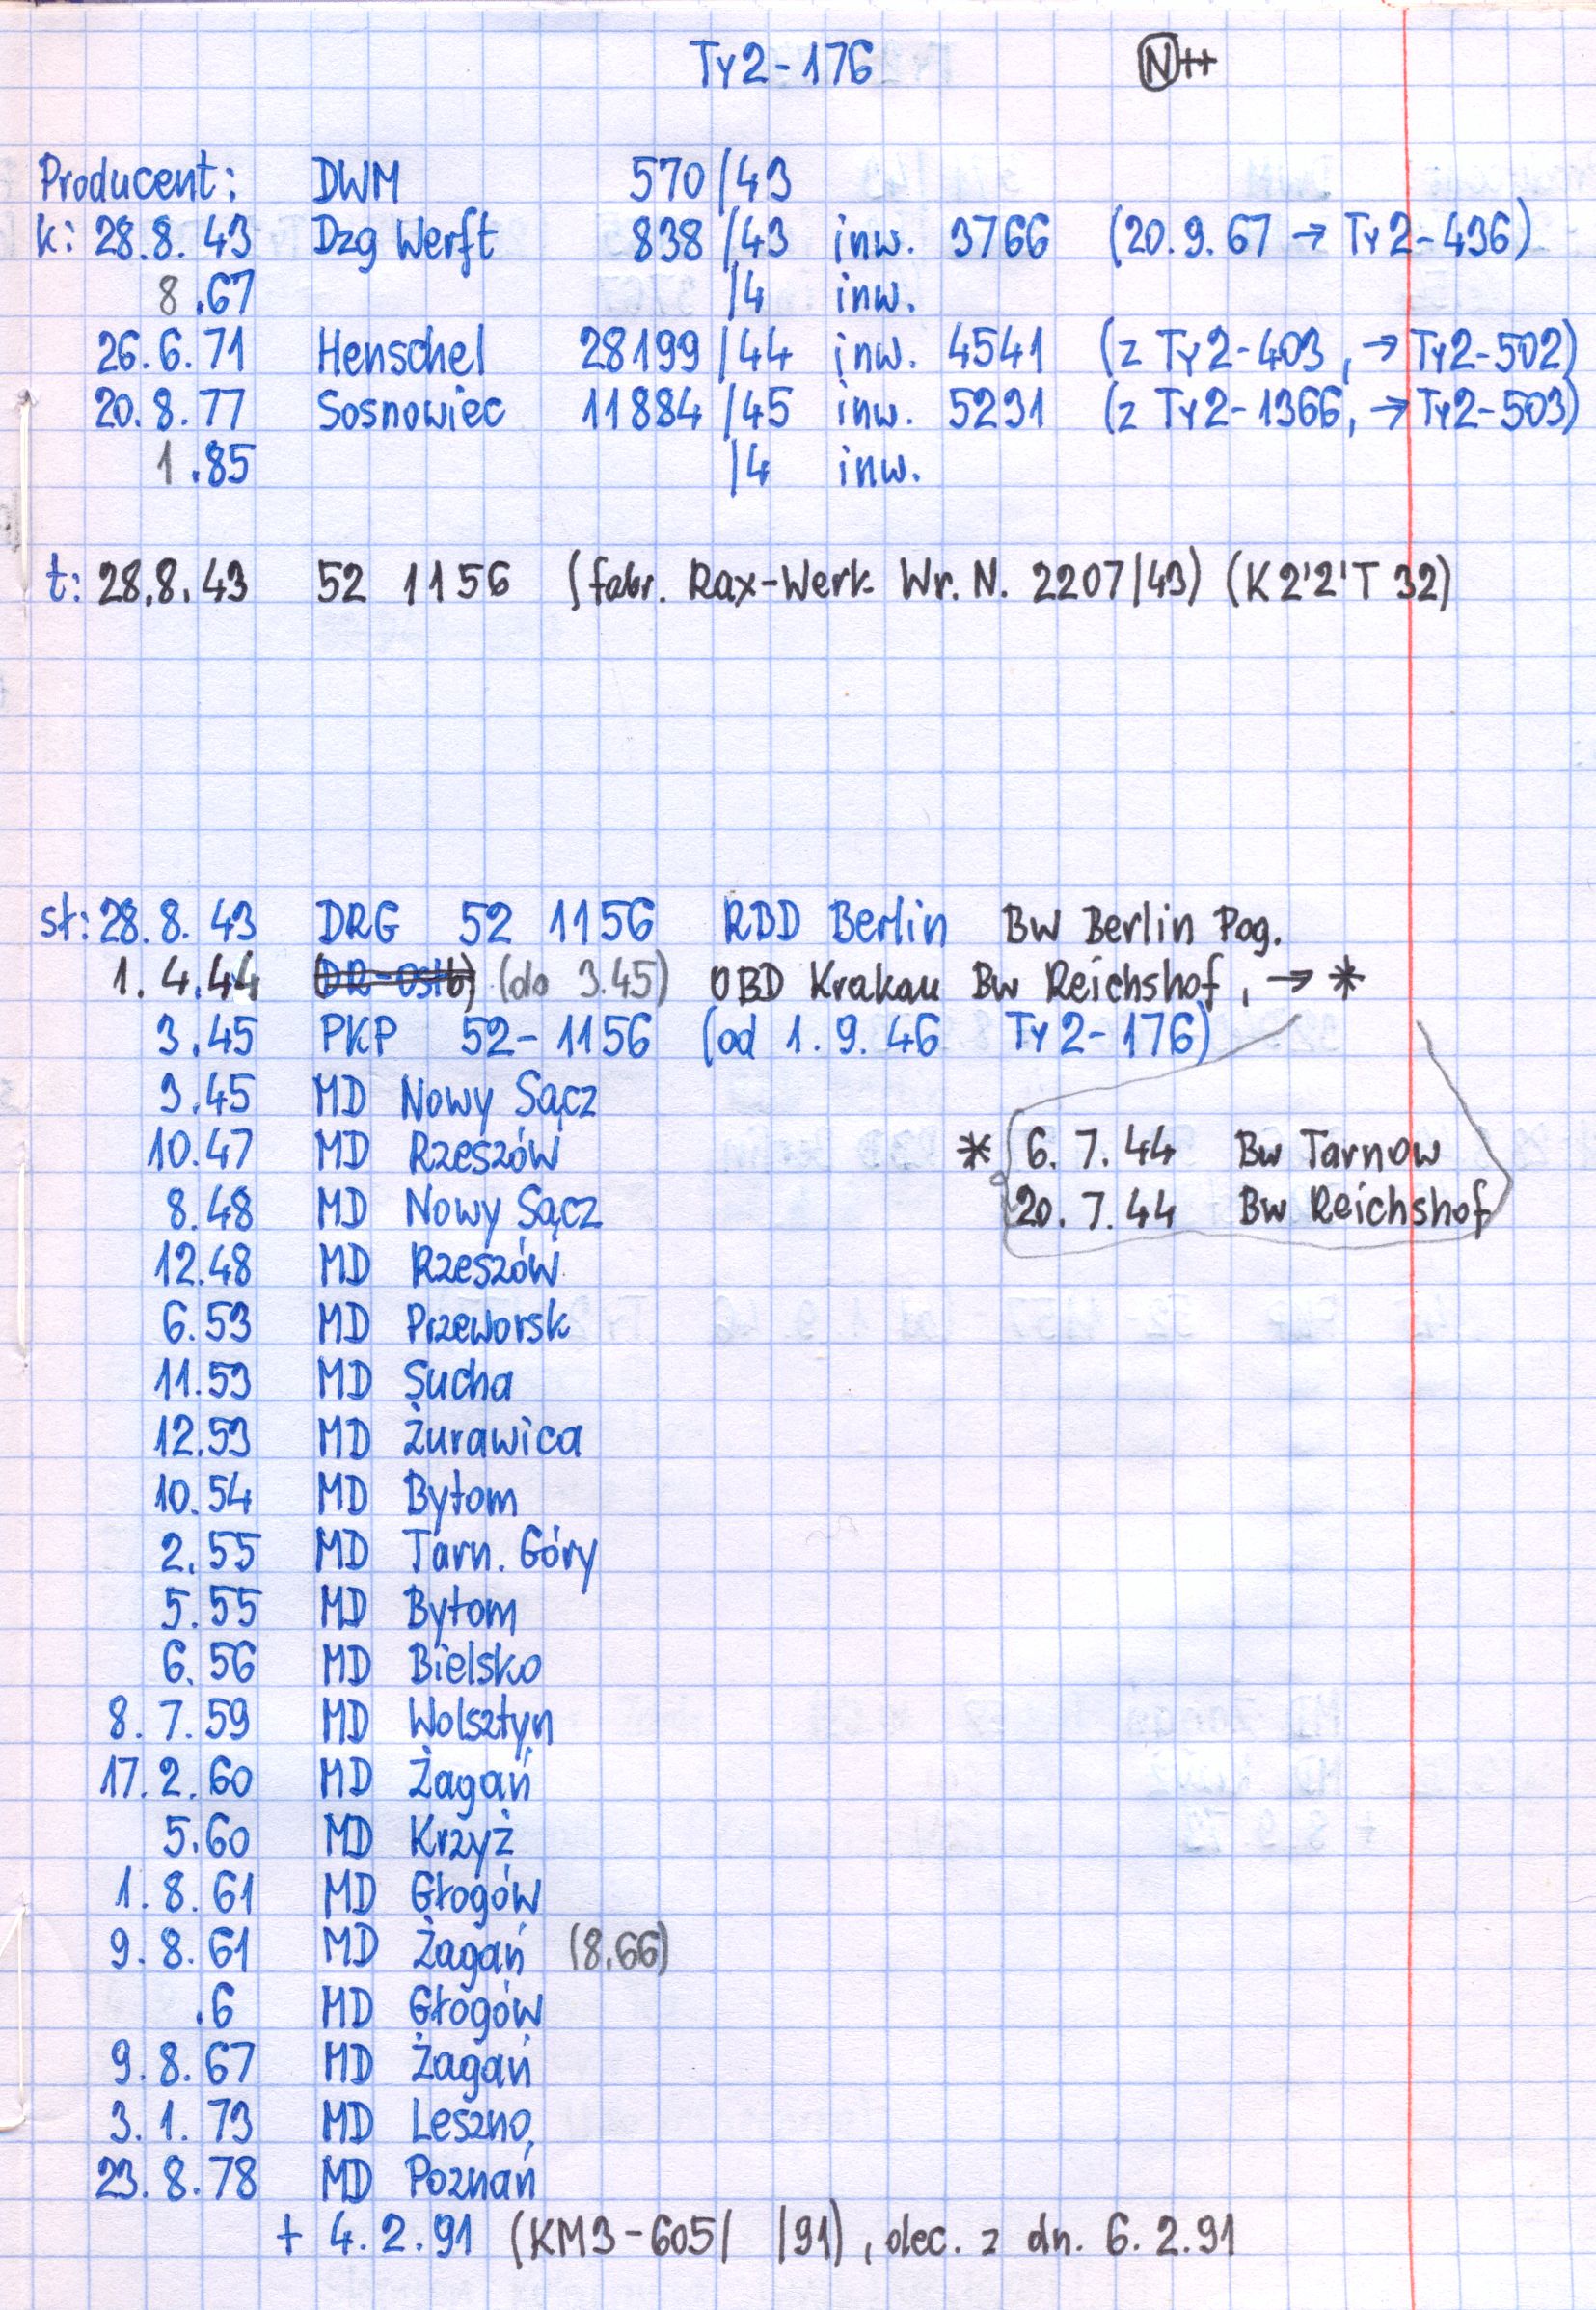 Ty2-176 N++
Producent: DWM 570/43
k: 28.8.43 Dzg Werft 838/43 inw. 3766 (20.9.67 → Ty2-436)
8.67 /4 inw.
26.6.71 Henschel 28199/44 inw. 4541 (z Ty2-403, → Ty2-502)
20.8.77 Sosnowiec 11884/45 inw. 5231 (z Ty2-1366, → Ty2-503)
1.85 /4 inw.
t: 28.8.43 52 1156 (fabr. Rax-Werk Wr. N. 2207/43) (K2'2'T 32)
st: 28.8.43 DRG 52 1156 RBD Berlin Bw Berlin Pog.
1.4.44 (DR-Ostb) (do 3.45) OBD Krakau Bw Reichshof, → *
3.45 PKP 52-1156 (od 1.9.46 Ty2-176)
3.45 MD Nowy Sącz
10.47 MD Rzeszów
* 6.7.44 Bw Tarnow
8.48 MD Nowy Sącz
20.7.44 Bw Reichshof
12.48 MD Rzeszów
6.53 MD Przeworsk
11.53 MD Sucha
12.53 MD Żurawica
10.54 MD Bytom
2.55 MD Tarn. Góry
5.55 MD Bytom
6.56 MD Bielsko
8.7.59 MD Wolsztyn
17.2.60 MD Żagań
5.60 MD Krzyż
1.8.61 MD Głogów
9.8.61 MD Żagań (8.66)
.6 MD Głogów
9.8.67 MD Żagań
3.1.73 MD Leszno
23.8.78 MD Poznań
+ 4.2.91 (KM3-605/ /91), dec. z dn. 6.2.91